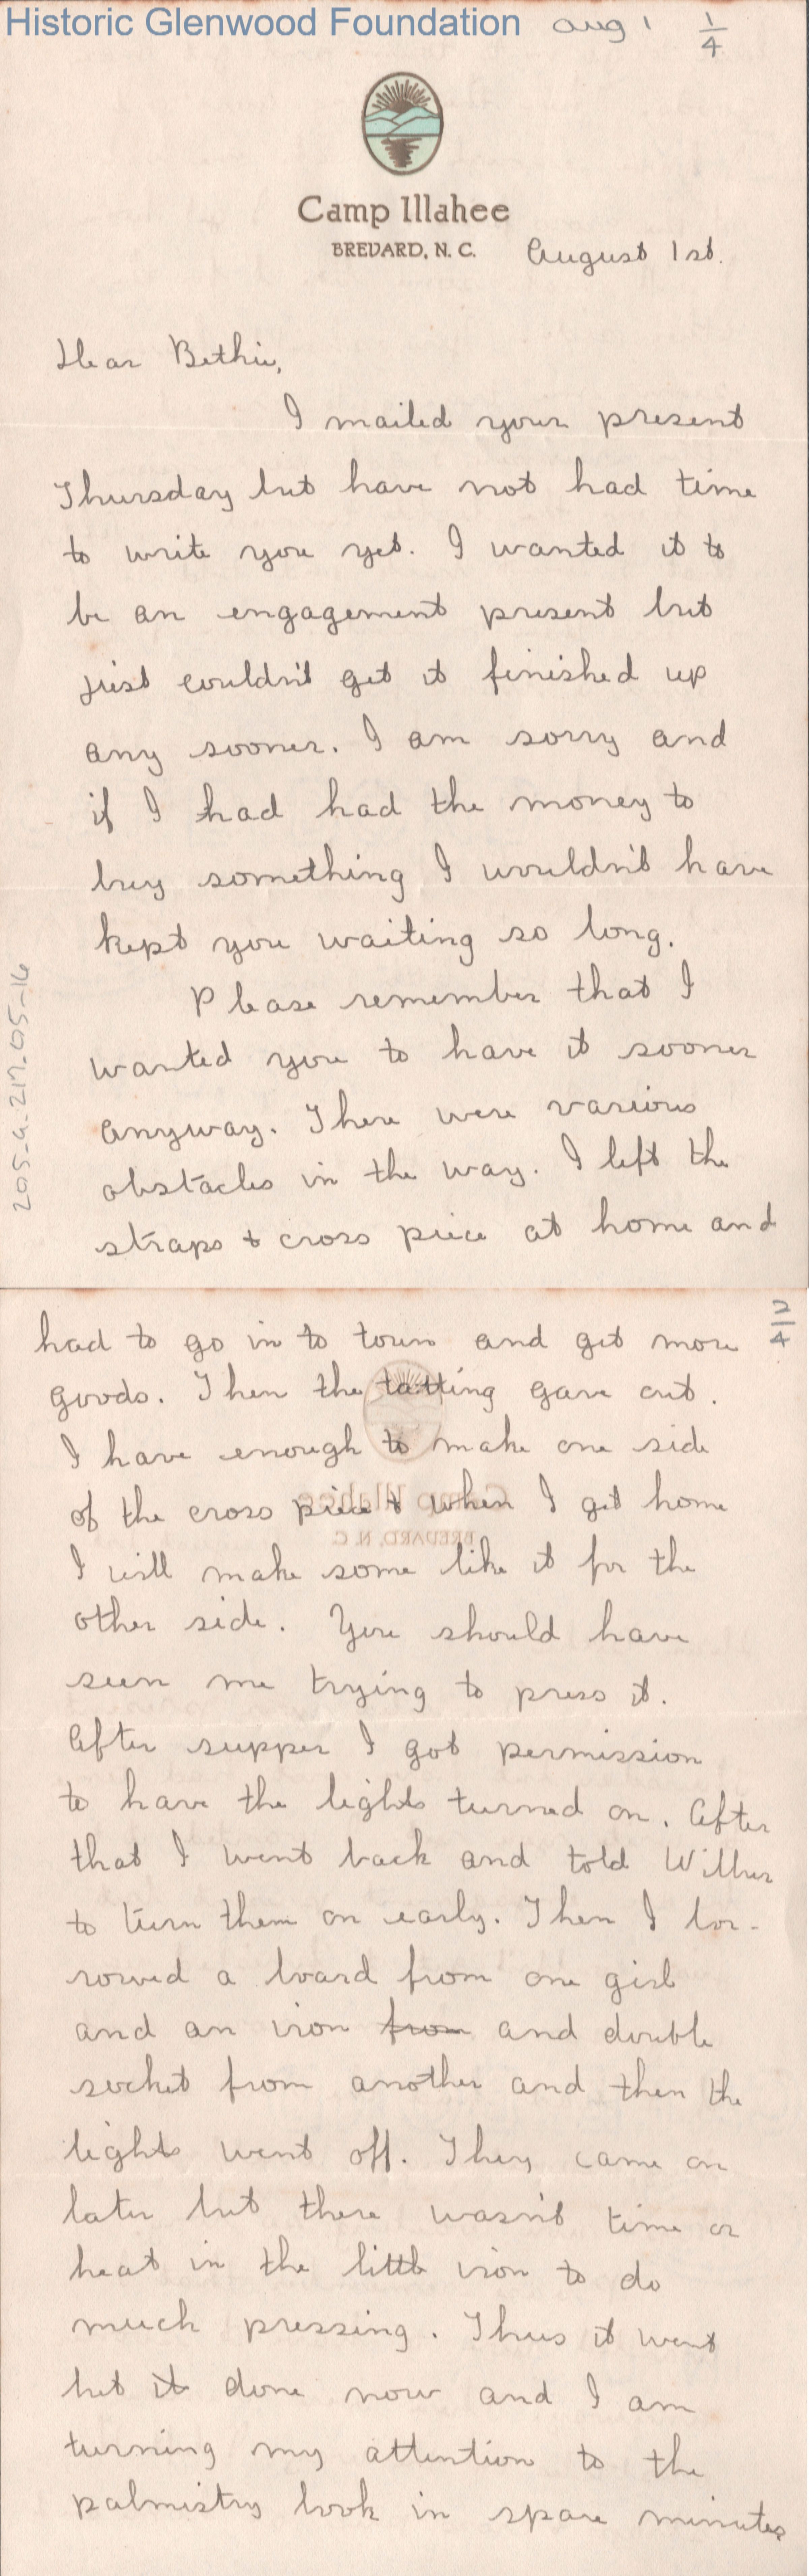 Historic Glenwood Foundation
Aug 1 1/4
Camp Illahee
BREVARD, N. C.
August 1st.
Dear Bethie,
I mailed your present
Thursday but have not had time
to write you yet. I wanted it to
be an engagement present but
just couldn't get it finished up
any sooner. I am sorry and
if I had had the money to
buy something I wouldn't have
kept you waiting so long.
Please remember that I
wanted you to have it sooner
anyway. There were various
obstacles in the way. I left the
straps & cross piece at home and
205-a-217-05-16
2/4
had to go in to town and get more
goods. Then the tatting gave out.
I have enough to make one side
of the cross piece & when I get home
I will make some like it for the
other side. You should have
seen me trying to press it.
After supper I got permission
to have the lights turned on. After
that I went back and told Wilbur
to turn them on early. Then I bor-
rowed a board from one girl
and an iron from and double
socket from another and then the
lights went off. They came on
later but there wasn't time or
heat in the little iron to do
much pressing. Thus it went
but it done now and I am
turning my attention to the
palmistry book in spare minutes
Camp Illahee
BREVARD, N. C.